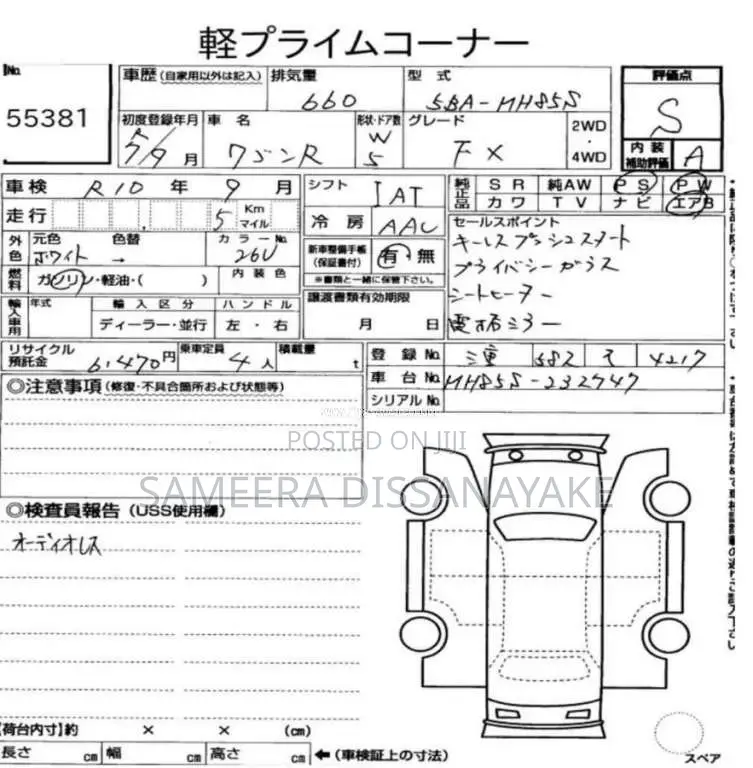 軽プライムコーナー
No. 55381
車歴 (自家用以外は記入) 排気量 660 型式 5BA-MH85S
初度登録年月 R7/9月 車名 ワゴンR 形状・ドア数 W 5 グレード FX 2WD・4WD
評価点 S
内装補助評価 A
車検 R10年9月 シフト IAT
純正品 SR 純AW PS PW
カワ TV ナビ エアB
走行 5 Km マイル 冷房 AAC
外色 元色 ホワイト 色替 → カラーNo. 26U
新車整備手帳(保証書付) 有・無
※書類と一緒に保管下さい。
燃料 ガソリン・軽油・( ) 内装色
セールスポイント
キーレスプッシュスタート
プライバシーガラス
シートヒーター
電格ミラー
輸入車用 年式 輸入区分 ハンドル
ディーラー・並行 左・右
譲渡書類有効期限
月 日
リサイクル預託金 6,470円 乗車定員 4人 積載量 t
登録No. 三重 582 4217
車台No. MH85S-232747
シリアルNo.
◎注意事項(修復・不具合箇所および状態等)
POSTED ON JIJI
SAMEERA DISSANAYAKE
◎検査員報告(USS使用欄)
オーディオレス
【荷台内寸】約 × × (cm)
長さ cm 幅 cm 高さ cm ←(車検証上の寸法)
スペア